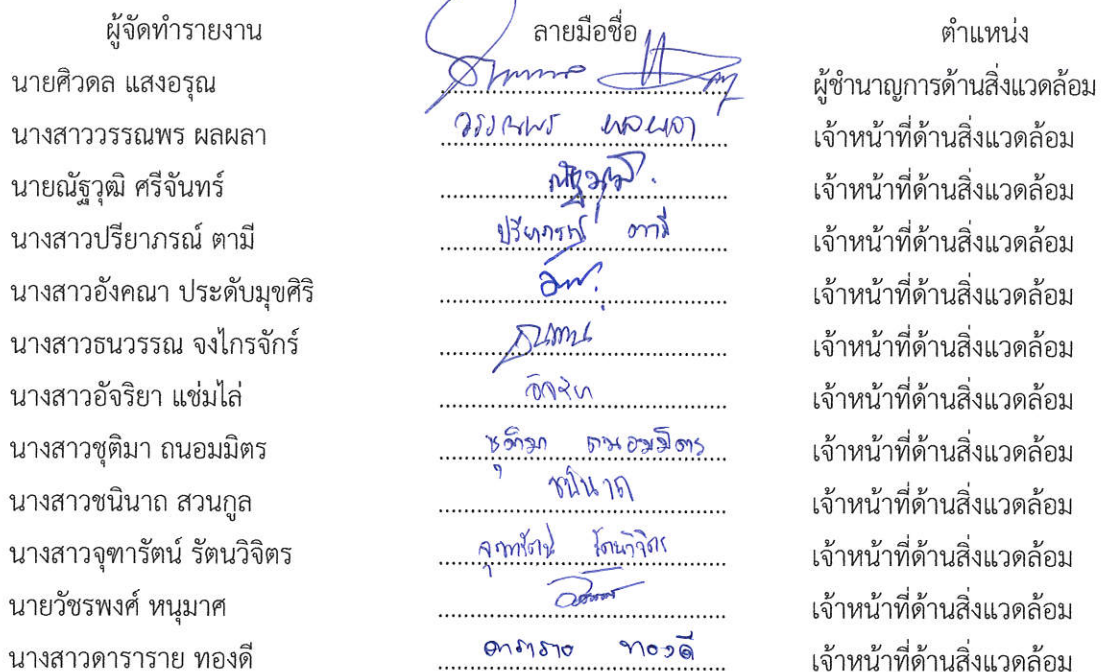 ผู้จัดทำรายงาน ลายมือชื่อ ตำแหน่ง
นายศิวดล แสงอรุณ ผู้ชำนาญการด้านสิ่งแวดล้อม
นางสาววรรณพร ผลผลา วรรณพร ผลผลา เจ้าหน้าที่ด้านสิ่งแวดล้อม
นายณัฐวุฒิ ศรีจันทร์ ณัฐวุฒิ. เจ้าหน้าที่ด้านสิ่งแวดล้อม
นางสาวปรียาภรณ์ ตามี ปรียาภรณ์ ตามี เจ้าหน้าที่ด้านสิ่งแวดล้อม
นางสาวอังคณา ประดับมุขศิริ เจ้าหน้าที่ด้านสิ่งแวดล้อม
นางสาวธนวรรณ จงไกรจักร์ เจ้าหน้าที่ด้านสิ่งแวดล้อม
นางสาวอัจริยา แช่มไล่ อัจริยา เจ้าหน้าที่ด้านสิ่งแวดล้อม
นางสาวชุติมา ถนอมมิตร ชุติมา ถนอมมิตร เจ้าหน้าที่ด้านสิ่งแวดล้อม
นางสาวชนินาถ สวนกูล ชนินาถ เจ้าหน้าที่ด้านสิ่งแวดล้อม
นางสาวจุฑารัตน์ รัตนวิจิตร จุฑารัตน์ รัตนวิจิตร เจ้าหน้าที่ด้านสิ่งแวดล้อม
นายวัชรพงศ์ หนุมาศ เจ้าหน้าที่ด้านสิ่งแวดล้อม
นางสาวดาราราย ทองดี ดาราราย ทองดี เจ้าหน้าที่ด้านสิ่งแวดล้อม